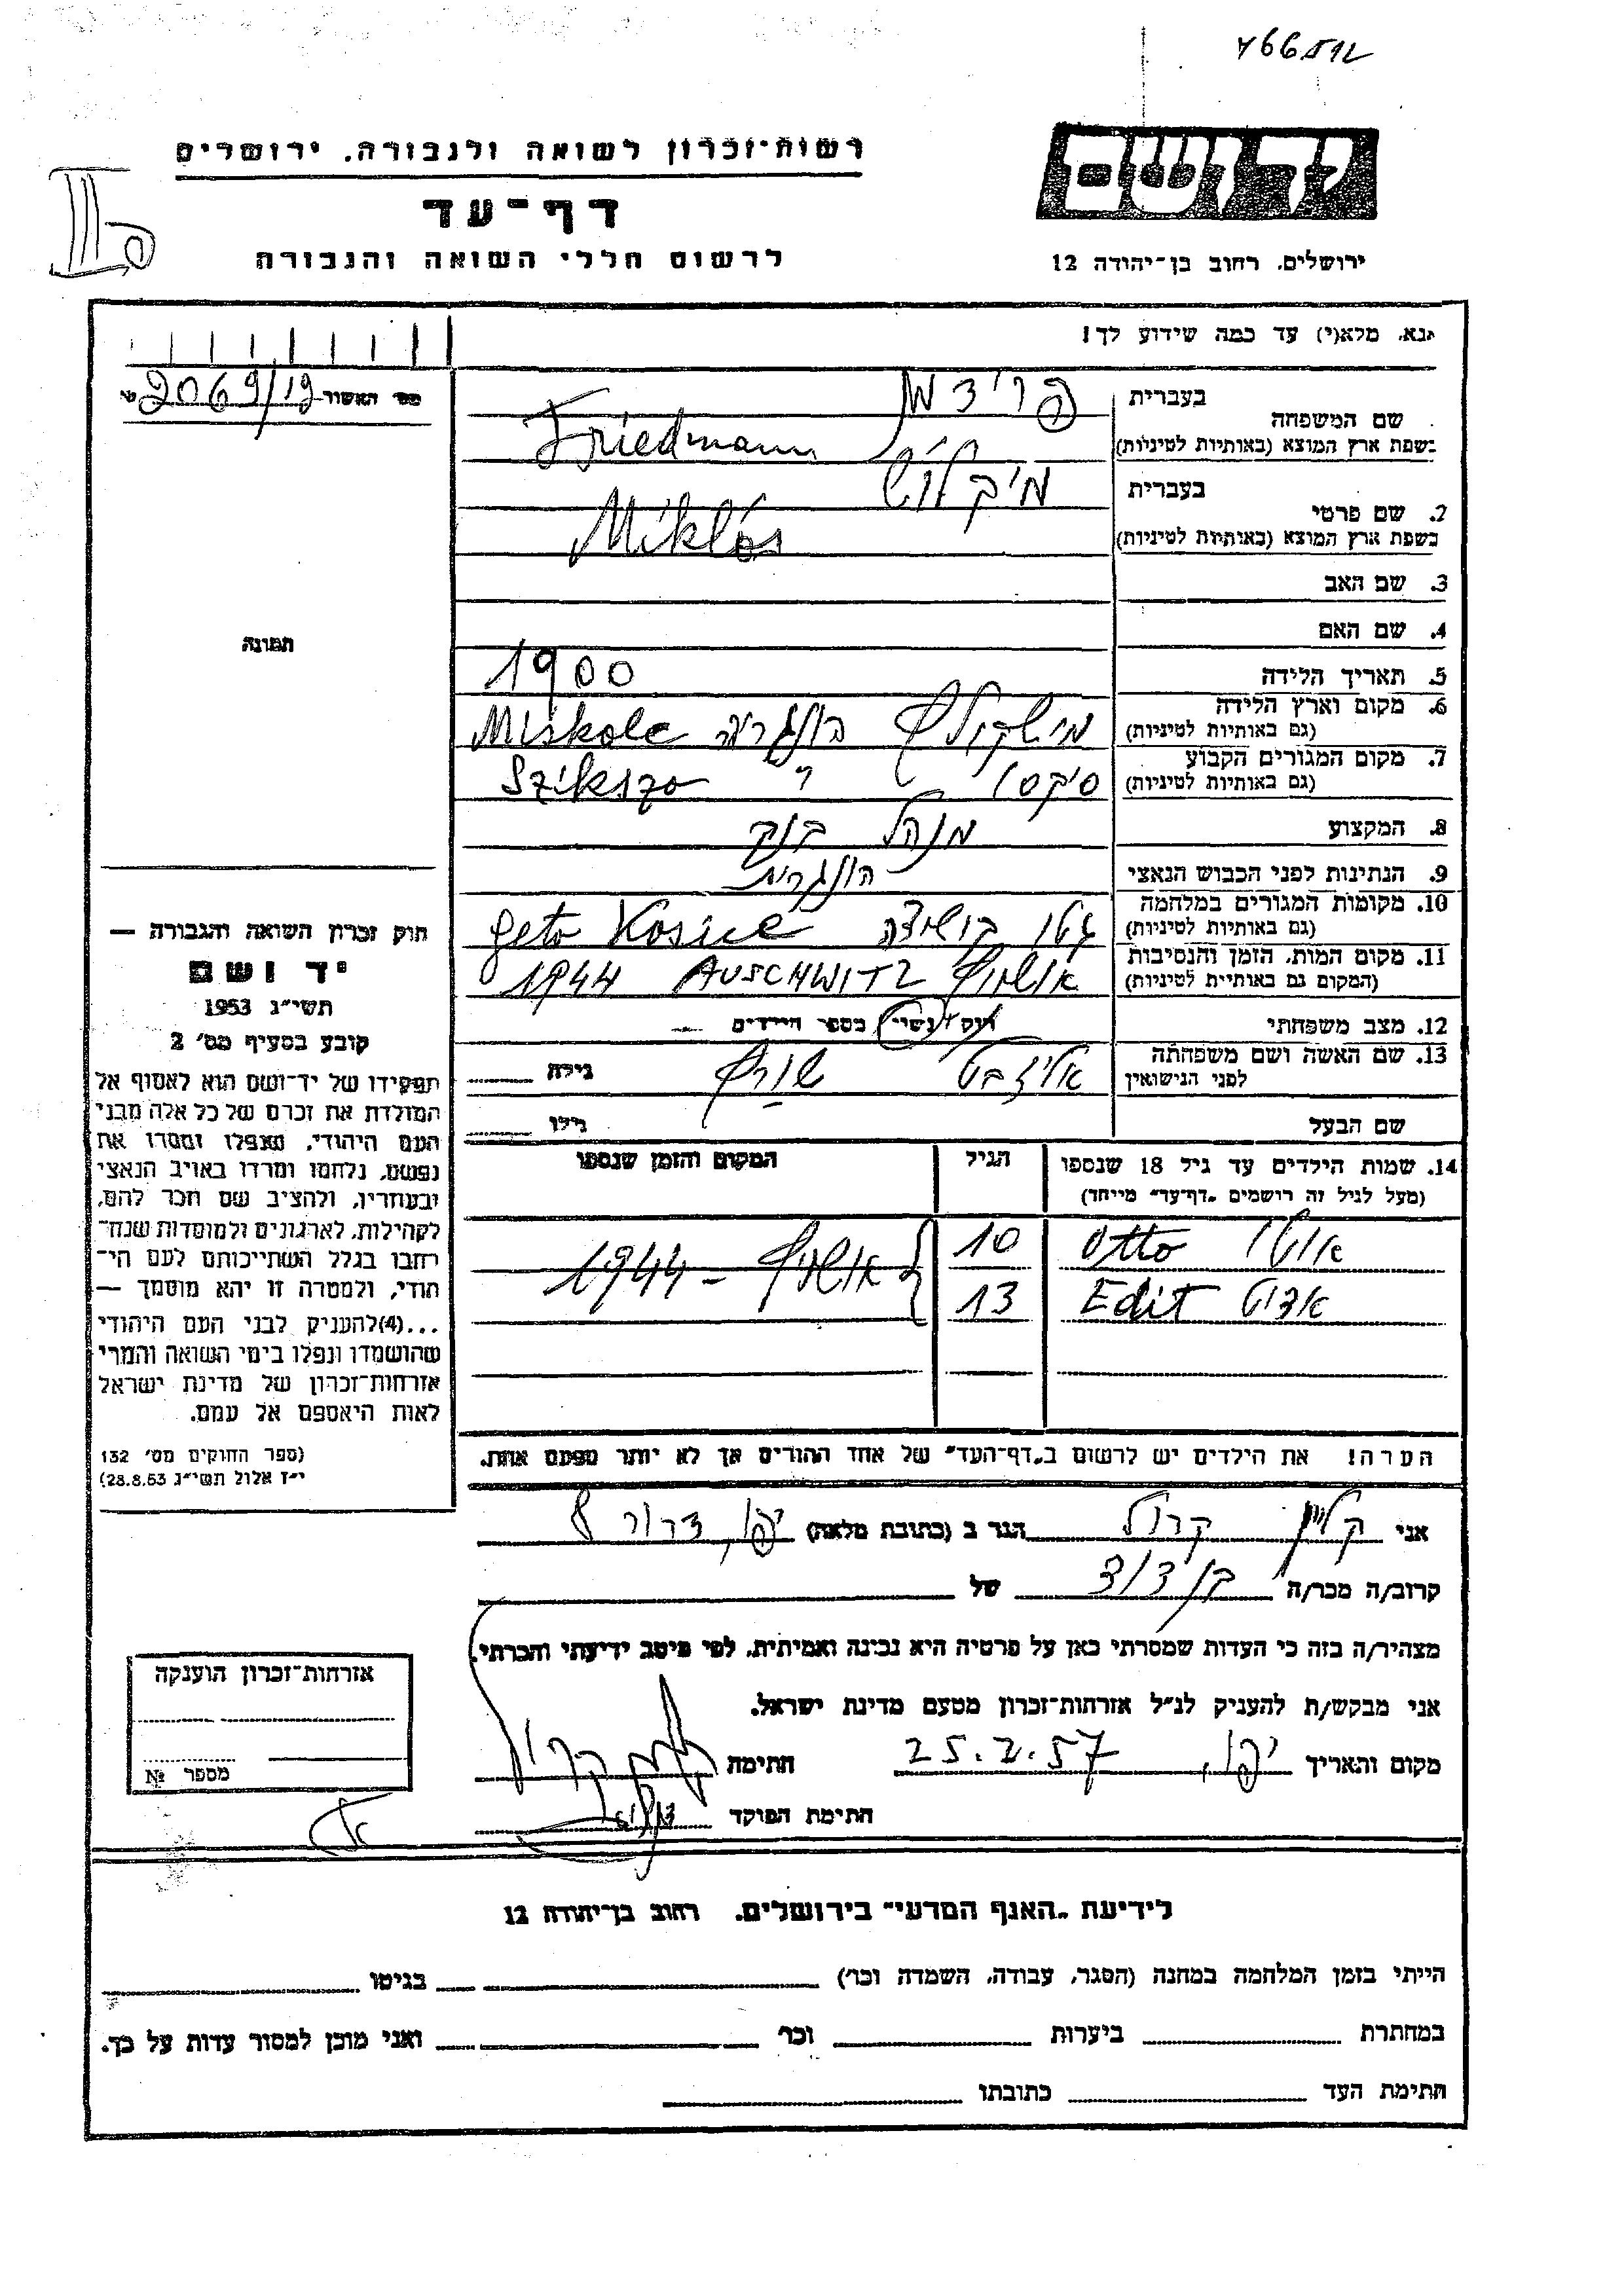 רשות-זכרון לשואה ולגבורה, ירושלים
דף-עד
לרשום חללי השואה והגבורה
ירושלים, רחוב בן-יהודה 12
אנא, מלא(י) עד כמה שידוע לך!
מס' האשור 2069/19
שם המשפחה
בעברית פרידמן
בשפת ארץ המוצא (באותיות לטיניות) Friedmann
2. שם פרטי
בעברית מיקלוש
בשפת ארץ המוצא (באותיות לטיניות) Miklós
3. שם האב
4. שם האם
5. תאריך הלידה 1900
6. מקום וארץ הלידה מישקולץ הונגריה Miskolc
(גם באותיות לטיניות)
7. מקום המגורים הקבוע סיקסו " Szikszo
(גם באותיות לטיניות)
8. המקצוע מנהל בנק
9. הנתינות לפני הכבוש הנאצי הונגרית
10. מקומות המגורים במלחמה גטו קושיצה geto Kosice
(גם באותיות לטיניות)
11. מקום המות, הזמן והנסיבות אושויץ AUSCHWITZ 1944
(המקום גם באותיות לטיניות)
12. מצב משפחתי רוק / נשוי מספר הילדים
13. שם האשה ושם משפחתה אליזבט שורץ גילה
לפני הנישואין
שם הבעל גילו
14. שמות הילדים עד גיל 18 שנספו הגיל המקום והזמן שנספו
(מעל לגיל זה רושמים "דף-עד" מייחד)
אוטו Otto 10 אושויץ - 1944
אדיט Edit 13
הערה! את הילדים יש לרשום ב"דף-העד" של אחד ההורים אך לא יותר מפעם אחת.
תמונה
חוק זכרון השואה והגבורה —
יד ושם
תשי"ג 1953
קובע בסעיף מס' 2
תפקידו של יד-ושם הוא לאסוף אל
המולדת את זכרם של כל אלה מבני
העם היהודי, שנפלו ומסרו את
נפשם, נלחמו ומרדו באויב הנאצי
ובעוזריו, ולהציב שם וזכר להם,
לקהילות, לארגונים ולמוסדות שנח-
רבו בגלל השתייכותם לעם הי-
הודי, ולמטרה זו יהא מוסמך —
...(4) להעניק לבני העם היהודי
שהושמדו ונפלו בימי השואה והמרי
אזרחות-זכרון של מדינת ישראל
לאות היאספם אל עמם.
(ספר החוקים מס' 132
י"ז אלול תשי"ג 28.8.53)
אני קליין קרול הגר ב (כתובת מלאה) יפו, דרור 8
קרוב/ה מכר/ה בן דוד של
מצהיר/ה בזה כי העדות שמסרתי כאן על פרטיה היא נכונה ואמיתית, לפי מיטב ידיעתי והכרתי.
אני מבקש/ת להעניק לנ"ל אזרחות-זכרון מטעם מדינת ישראל.
מקום ותאריך יפו, 25.2.57 חתימה קליין קרול
חתימת הפוקד
אזרחות-זכרון הוענקה
מספר №
לידיעת "האגף המדעי" בירושלים, רחוב בן-יהודה 12
הייתי בזמן המלחמה במחנה (הסגר, עבודה, השמדה וכו') בגיטו
במחתרת ביערות וכו' ואני מוכן למסור עדות על כך.
חתימת העד כתובתו